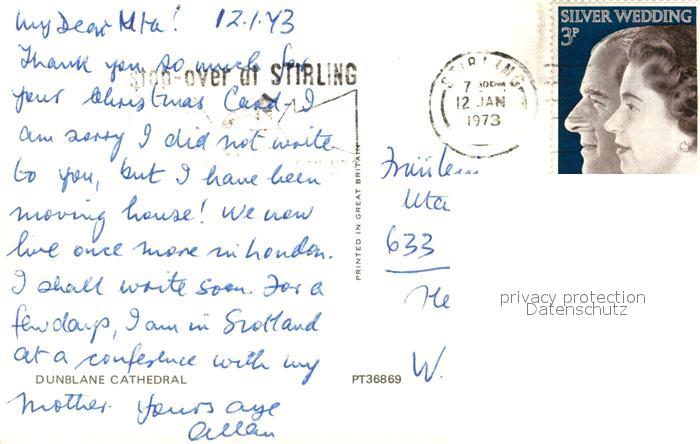 My Dear Uta! 12.1.73
Thank you so much for
your Christmas Card. I
am sorry I did not write
to you, but I have been
moving house! We now
live once more in London.
I shall write soon. For a
few days, I am in Scotland
at a conference with my
mother. Yours aye
Allan
stop-over at STIRLING
STIRLING
12 JAN
1973
SILVER WEDDING
3P
PRINTED IN GREAT BRITAIN
Fräulein
Uta
633
W.
privacy protection
Datenschutz
DUNBLANE CATHEDRAL
PT36869